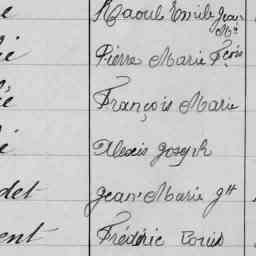 e Raoul Emile Jean
Mie
ié Pierre Marie Fçois
ée François Marie
é Alexis Joseph
det Jean Marie Gll
ent Frédéric Louis